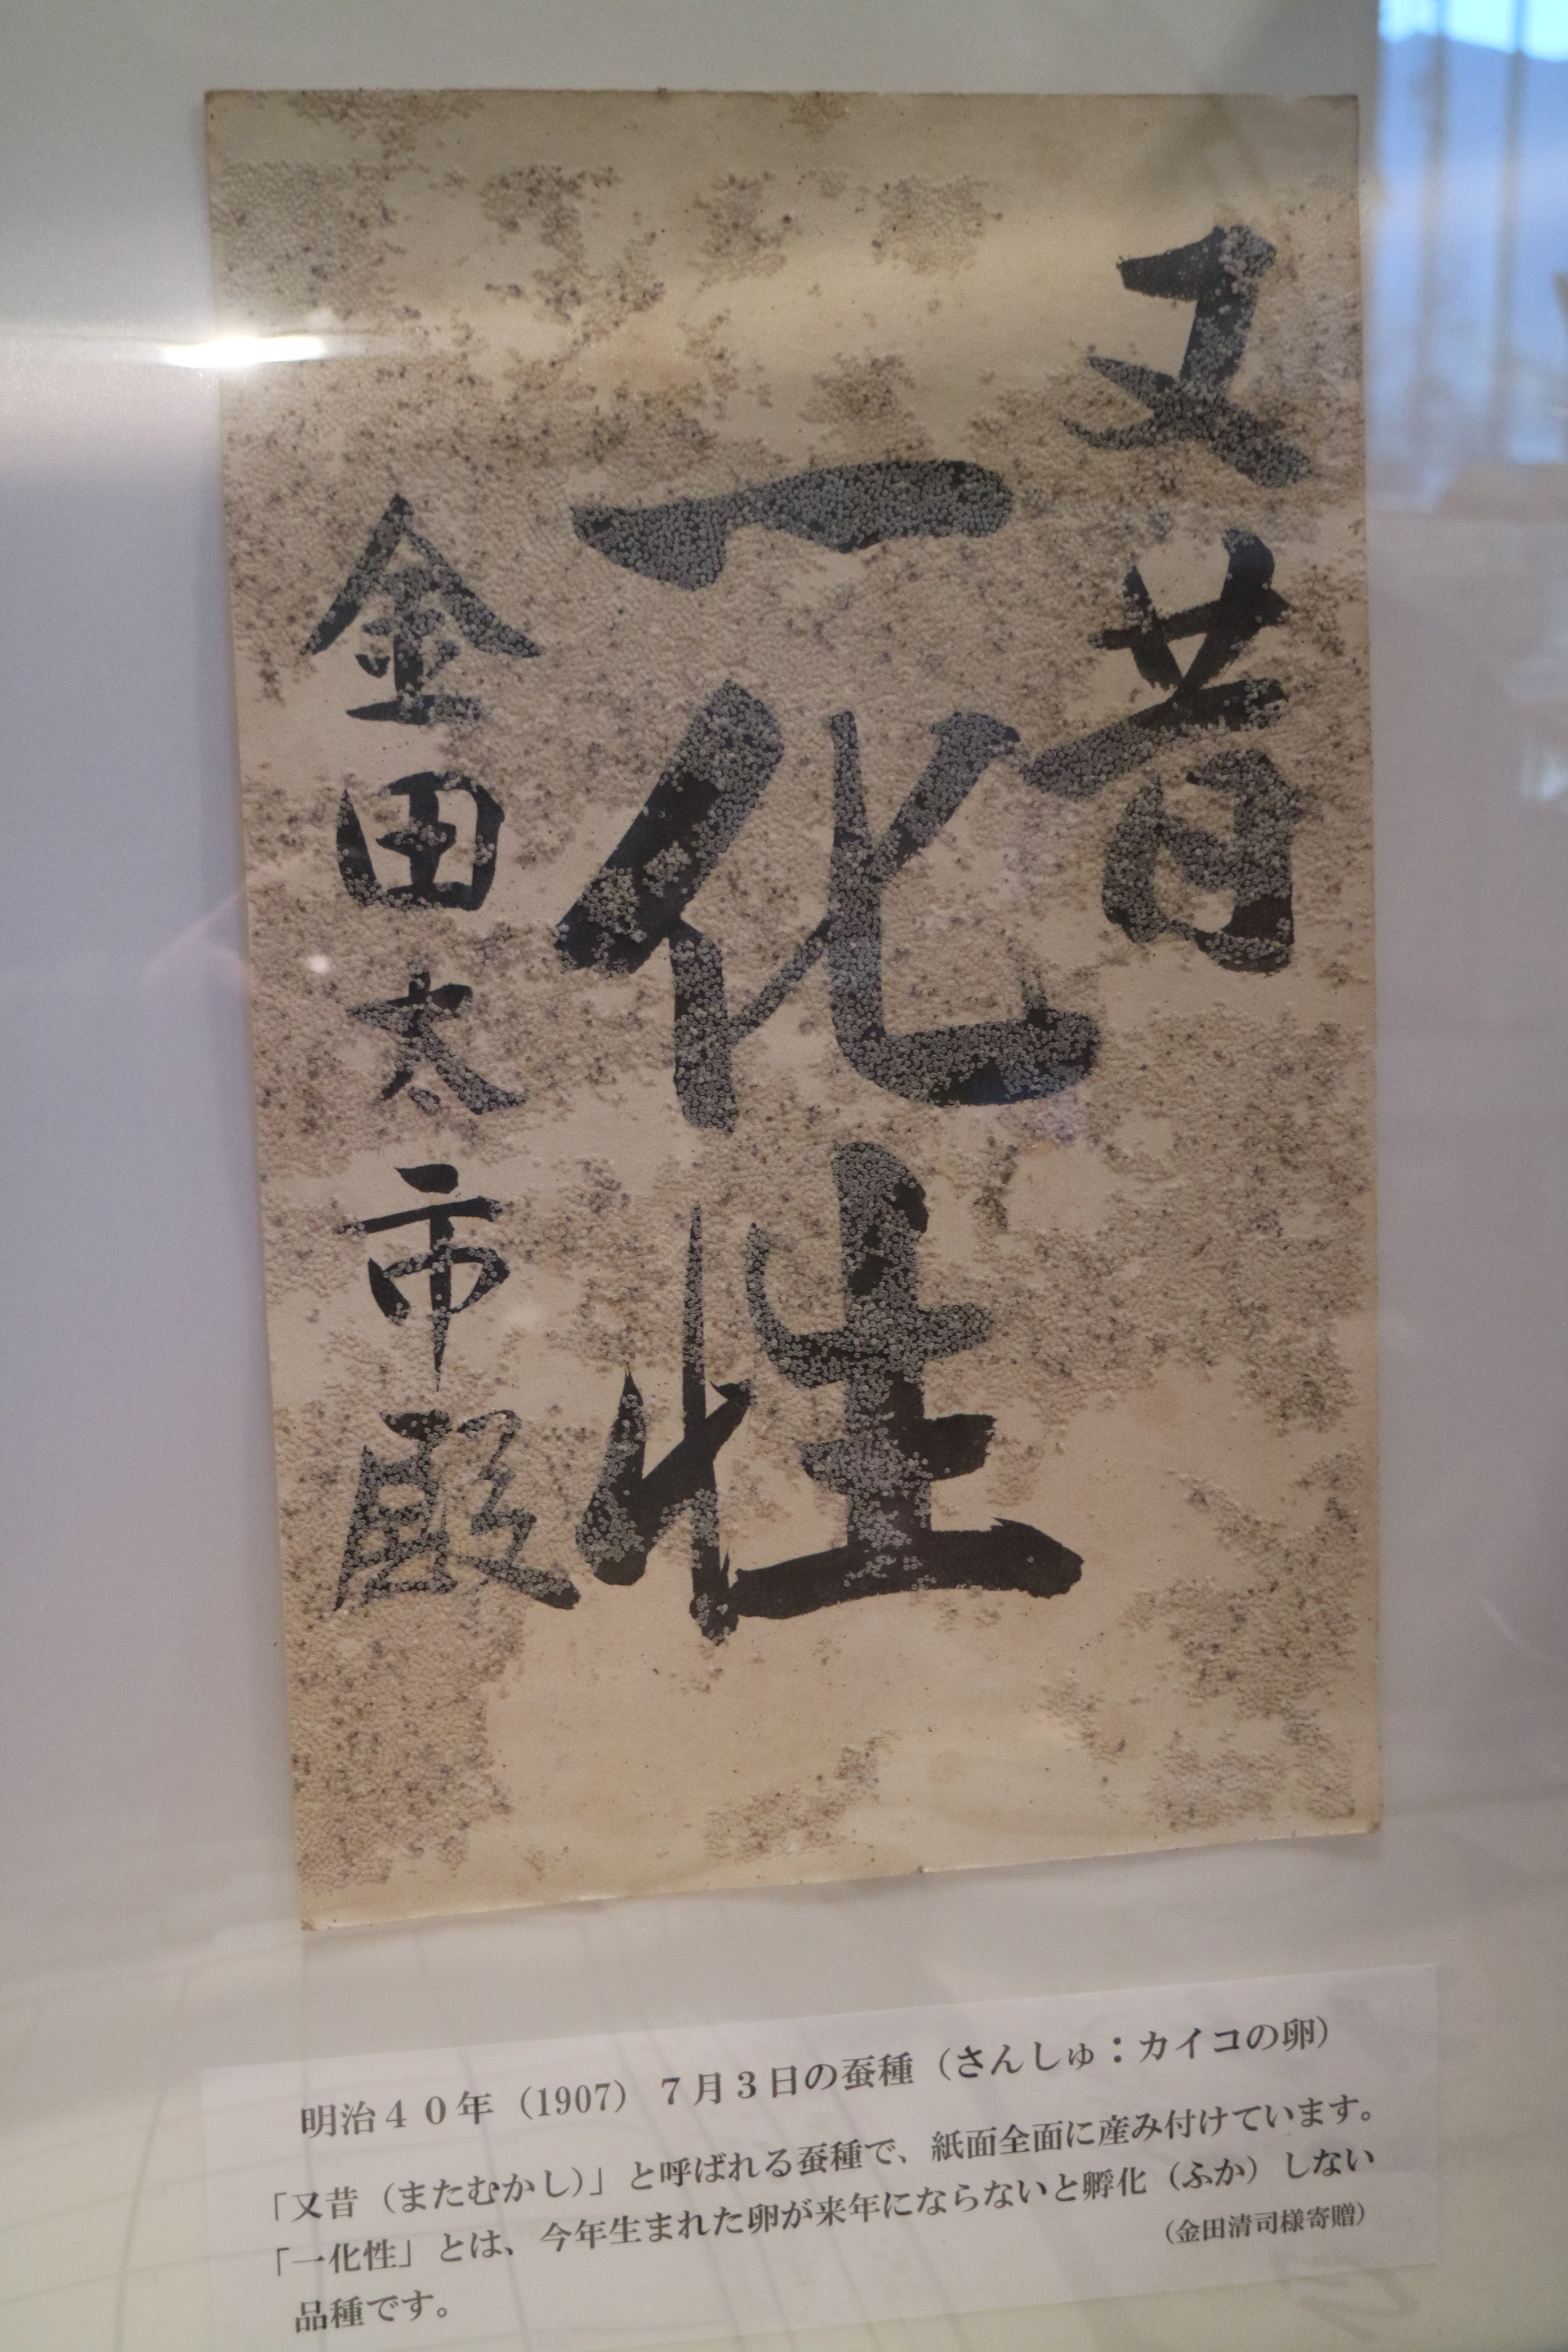 又昔
一化性
金田太市殿
明治４０年（1907）７月３日の蚕種（さんしゅ：カイコの卵）
「又昔（またむかし）」と呼ばれる蚕種で、紙面全面に産み付けています。
「一化性」とは、今年生まれた卵が来年にならないと孵化（ふか）しない
品種です。
（金田清司様寄贈）